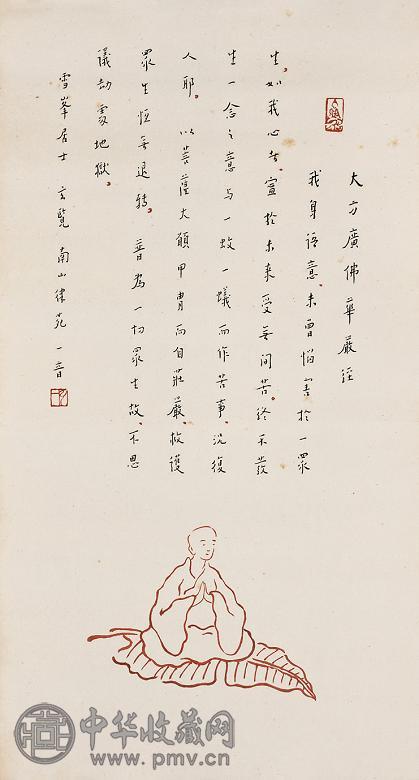 大方廣佛華嚴經
我身語意。未曾惱害於一眾
生。如我心者。寧於未來受無間苦。終不發
生一念之意與一蚊一蟻而作苦事。況復
人耶。 以菩薩大願甲冑而自莊嚴。救護
眾生恆無退轉。 普為一切眾生故。不思
議劫處地獄。
雪峯居士 玄覽 南山律苑 一音
中华收藏网
www.pmv.cn